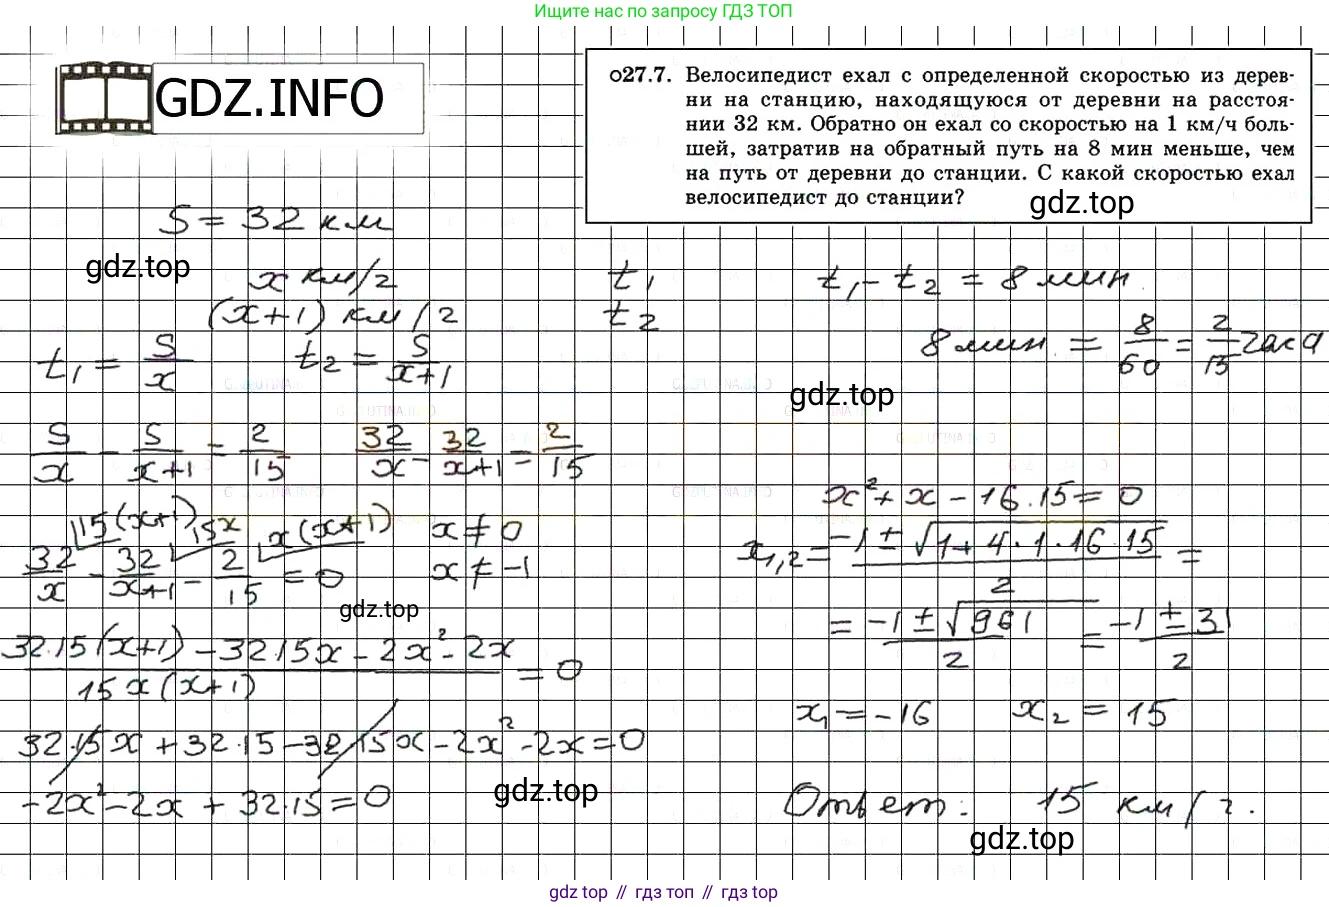 Ищите нас по запросу ГДЗ ТОП
GDZ.INFO
О27.7. Велосипедист ехал с определенной скоростью из дерев-
ни на станцию, находящуюся от деревни на расстоя-
нии 32 км. Обратно он ехал со скоростью на 1 км/ч боль-
шей, затратив на обратный путь на 8 мин меньше, чем
на путь от деревни до станции. С какой скоростью ехал
велосипедист до станции?
gdz.top
S = 32 км
gdz.top
x км/г
(x+1) км/г
t₁
t₂
t₁ - t₂ = 8 мин.
8 мин. = 8/60 = 2/15 часа
t₁ = S/x t₂ = S/(x+1)
gdz.top
S/x - S/(x+1) = 2/15 32/x - 32/(x+1) = 2/15
32/x - 32/(x+1) - 2/15 = 0
15(x+1) 15x x(x+1)
x ≠ 0
x ≠ -1
gdz.top
(32·15(x+1) - 32·15x - 2x² - 2x)/(15x(x+1)) = 0
32·15x + 32·15 - 32·15x - 2x² - 2x = 0
-2x² - 2x + 32·15 = 0
gdz.top
x² + x - 16·15 = 0
x₁,₂ = (-1 ± √(1 + 4·1·16·15))/2 =
= (-1 ± √961)/2 = (-1 ± 31)/2
x₁ = -16 x₂ = 15
Ответ: 15 км/г.
gdz.top
gdz top // гдз топ // гдз top